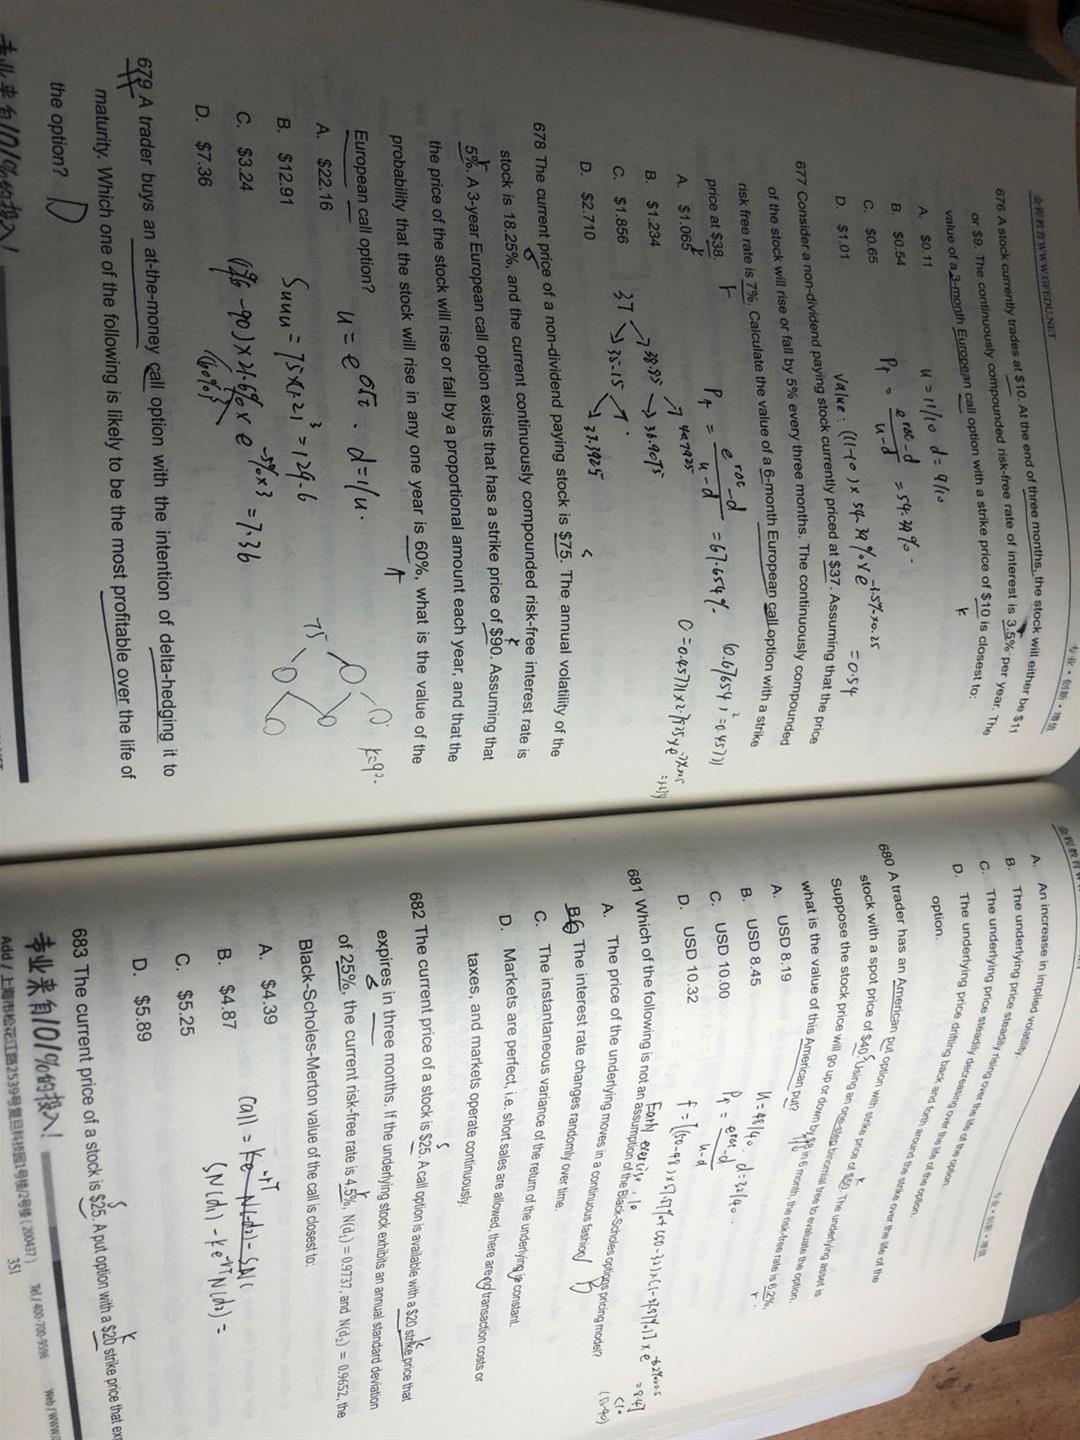 金程教育WWW.GFEDU.NET
专业·创新·增值
676 A stock currently trades at $10. At the end of three months, the stock will either be $11
or $9. The continuously compounded risk-free rate of interest is 3.5% per year. The
value of a 3-month European call option with a strike price of $10 is closest to:
k
A. $0.11
u=11/10 d=9/10
B. $0.54
C. $0.65
D. $1.01
677 Consider a non-dividend paying stock currently priced at $37. Assuming that the price
of the stock will rise or fall by 5% every three months. The continuously compounded
risk free rate is 7%. Calculate the value of a 6-month European call option with a strike
price at $38.
A. $1.065
B. $1.234
C. $1.856
D. $2.710
37
38.85
35.15
36.9075
678 The current price of a non-dividend paying stock is $75. The annual volatility of the
stock is 18.25%, and the current continuously compounded risk-free interest rate is
5%. A 3-year European call option exists that has a strike price of $90. Assuming that
the price of the stock will rise or fall by a proportional amount each year, and that the
probability that the stock will rise in any one year is 60%, what is the value of the
European call option?
A. $22.16
B. $12.91
C. $3.24
D. $7.36
75
679 A trader buys an at-the-money call option with the intention of delta-hedging it to
maturity. Which one of the following is likely to be the most profitable over the life of
the option? D
专业来自101%的投入!
金程教育
专业·创新·增值
A. An increase in implied volatility.
B. The underlying price steadily rising over the life of the option.
C. The underlying price steadily decreasing over the life of the option.
D. The underlying price drifting back and forth around the strike over the life of the
option.
680 A trader has an American put option with strike price of $50. The underlying asset is
stock with a spot price of $40. Using an one-step binomial tree to evaluate the option.
Suppose the stock price will go up or down by $8 in 6 month, the risk-free rate is 6.2%,
what is the value of this American put?
A. USD 8.19
B. USD 8.45
C. USD 10.00
D. USD 10.32
Early exercise: 10
681 Which of the following is not an assumption of the Black-Scholes options pricing model?
A. The price of the underlying moves in a continuous fashion
B. The interest rate changes randomly over time.
C. The instantaneous variance of the return of the underlying is constant.
D. Markets are perfect, i.e. short sales are allowed, there are no transaction costs or
taxes, and markets operate continuously.
682 The current price of a stock is $25. A call option is available with a $20 strike price that
expires in three months. If the underlying stock exhibits an annual standard deviation
of 25%, the current risk-free rate is 4.5%, N(d₁) = 0.9737, and N(d₂) = 0.9652, the
Black-Scholes-Merton value of the call is closest to:
A. $4.39
B. $4.87
C. $5.25
D. $5.89
683 The current price of a stock is $25. A put option with a $20 strike price that
专业来自101%的投入!
Add / 上海市松花江路2539号复旦科技园1号楼/2号楼 (200437)
351
Tel / 400-700-9596